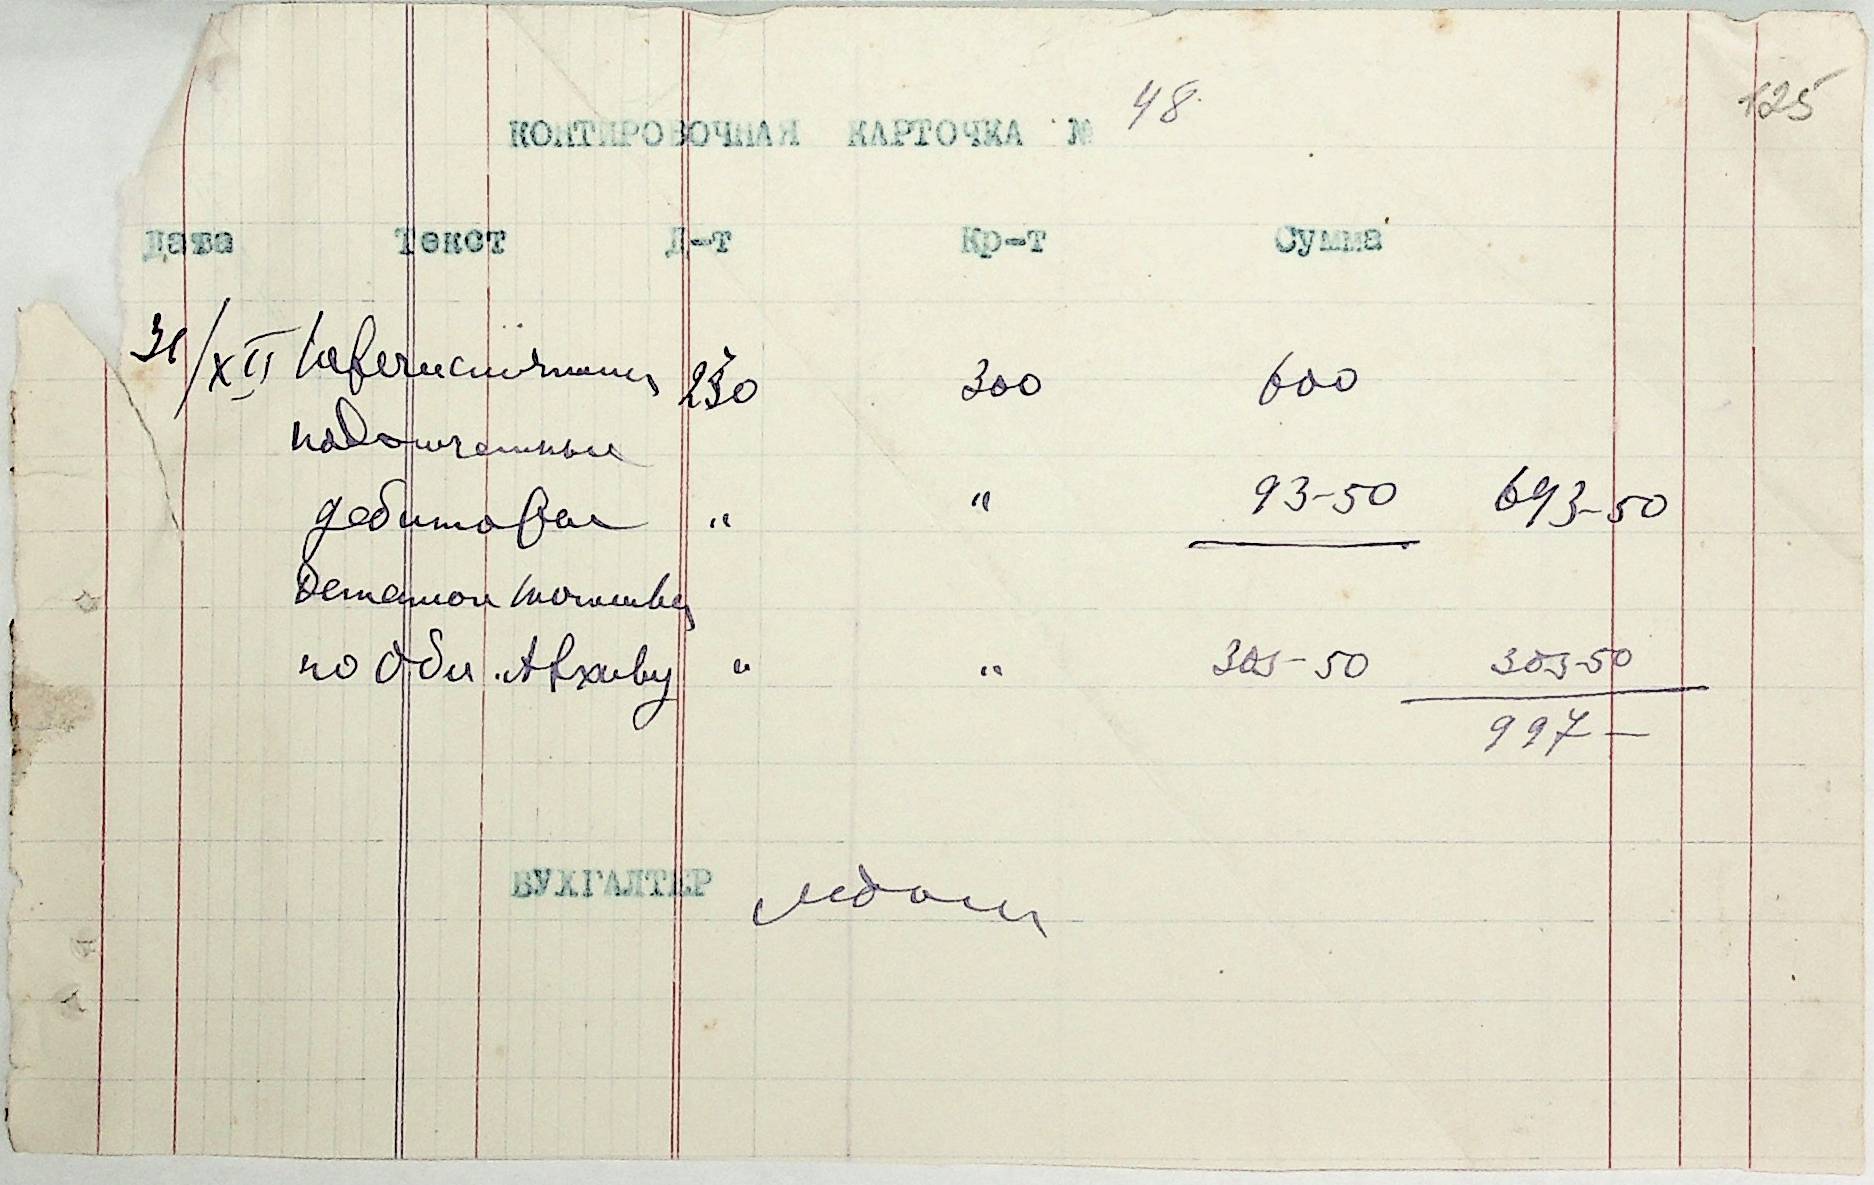 125
КОНТИРОВОЧНАЯ КАРТОЧКА № 48
Дата Текст Д-т Кр-т Сумма
31/XII 230 300 600
подотчетные
дебиторы " " 93-50 693-50
по Обл. Архиву " " 303-50 303-50
997-
БУХГАЛТЕР